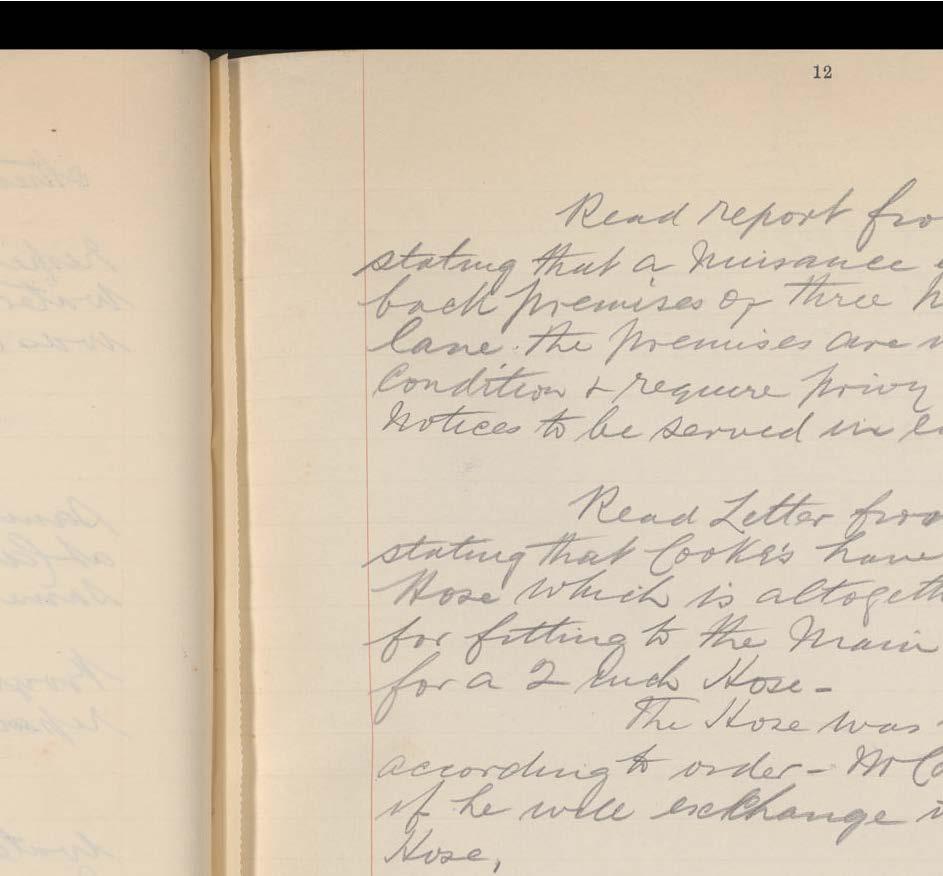 12
Read report fro
stating that a Nuisance
back premises of three h
lane. the premises are
Condition & require privy
Notices to be served in
Read Letter from
stating that Cooke's have
Hose which is altogeth
for fitting to the Main
for a 2 Inch Hose -
The Hose was
according to order - Mr Co
if he will exchange
Hose,